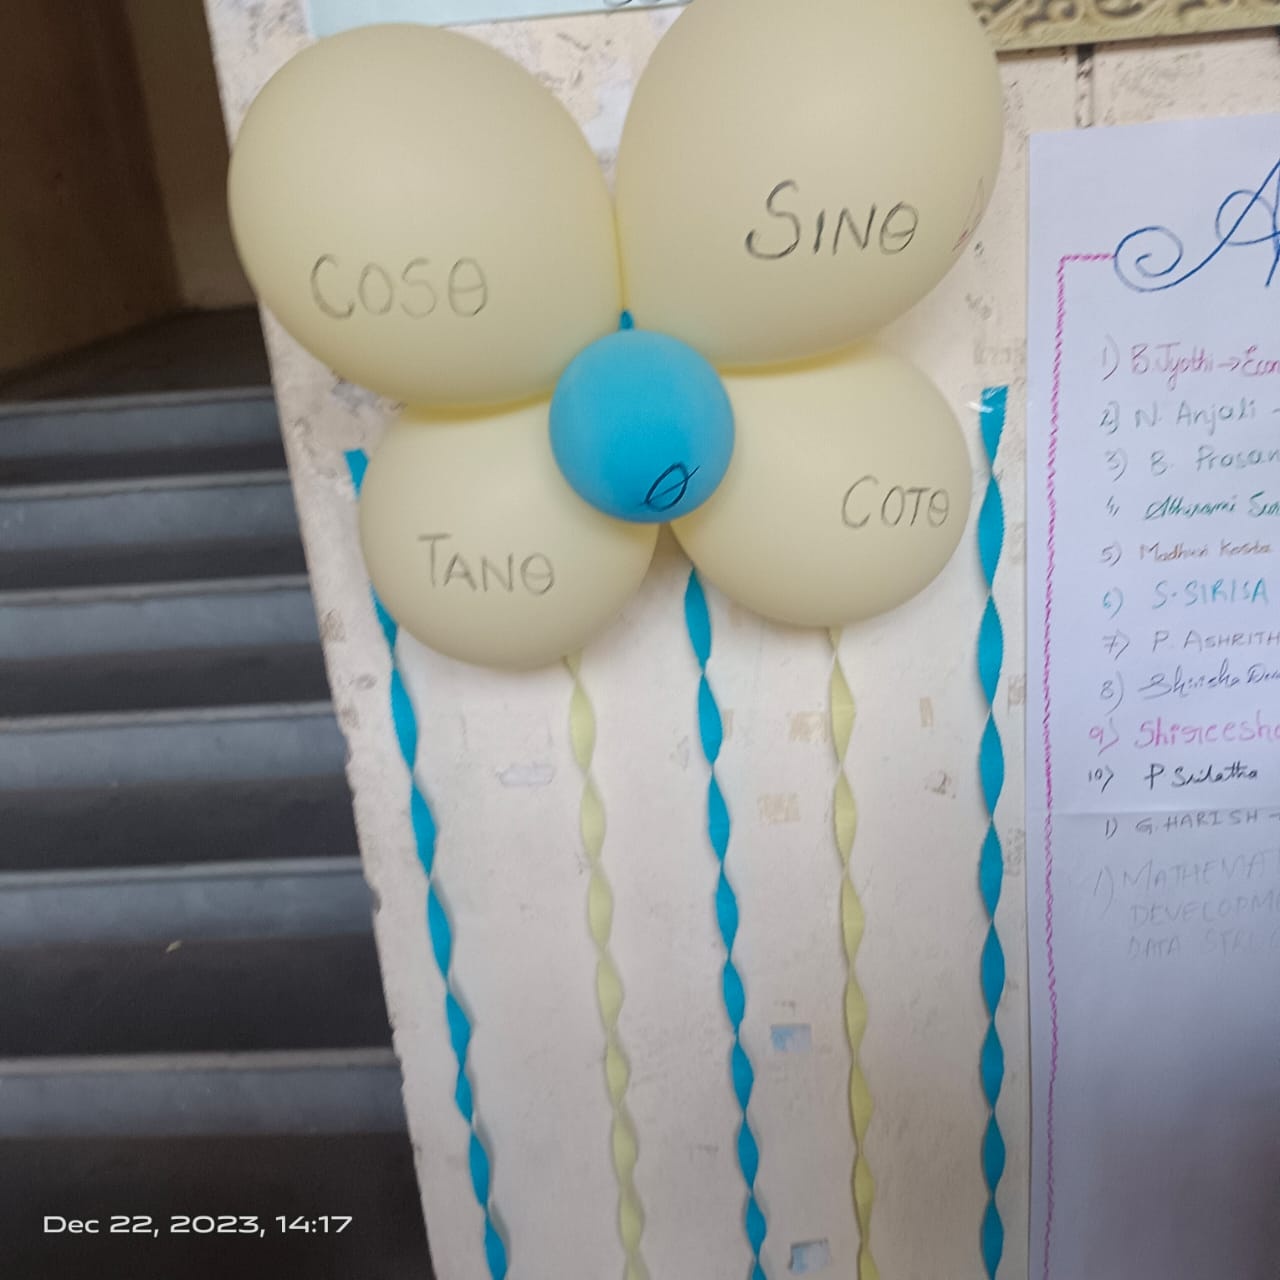 COSθ
SINθ
θ
TANθ
COTθ
A
1) B.Jyothi → Econ
2) N. Anjali -
3) B. Prasan
4,
5) Madhuri
6) S.SIRISA
7) P. ASHRITH
8) Shirisha
9) Shireesha
10) P Srilatha
1) G.HARISH -
1) MATHEMA
DEVELOPM
DATA
Dec 22, 2023, 14:17